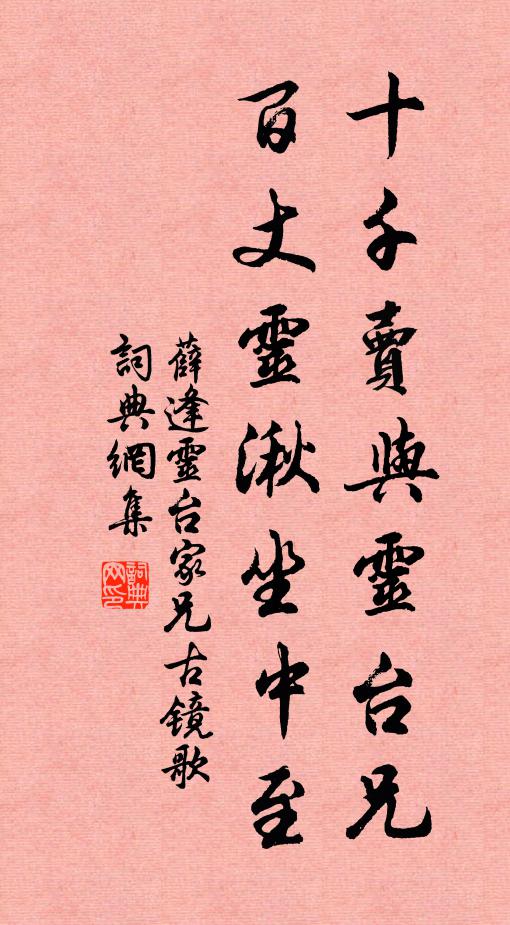 十千賣與靈台兄
百丈靈湫坐中至
薛逢靈台家兄古镜歌
詞典網集
詞典网印